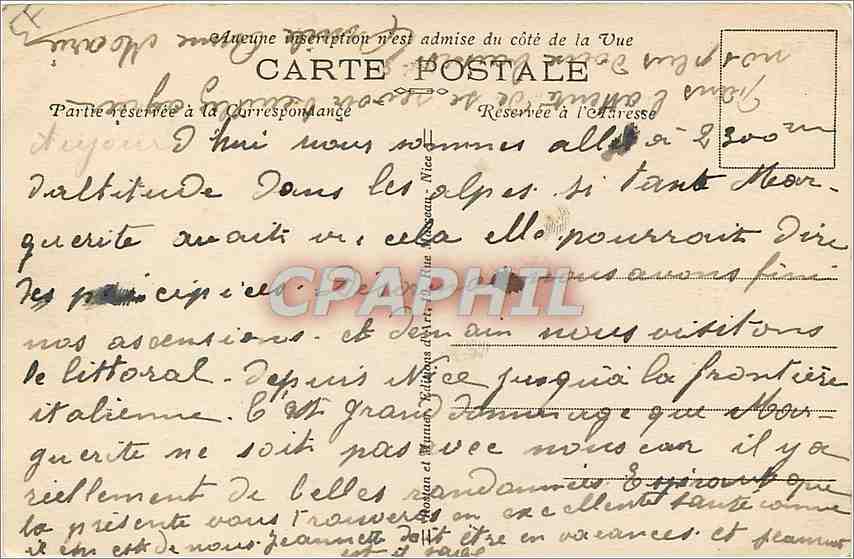 Aucune inscription n'est admise du côté de la Vue
CARTE POSTALE
Partie réservée à la Correspondance
Réservée à l'Adresse
Aujourd'hui nous sommes allé à 2300m
d'altitude dans les alpes si tant Mar-
guerite avait vu cela elle pourrait dire
des précipices. nous avons fini
nos ascensions. et demain nous visitons
le littoral. depuis Nice jusqu'à la frontière
italienne. C'est grand dommage que Mar-
guerite ne soit pas avec nous car il y a
réellement de belles randonnées Espérant que
la présente vous trouveras en excellente santé comme
il en est de nous Jeannette doit être en vacances et Jeannot
est il sage
Dans l'attente de se revoir
nos plus doux baisers
Anna Marie
Rostan et Munier, Editions d'Art, Rue Masseau - Nice
CPAPHIL